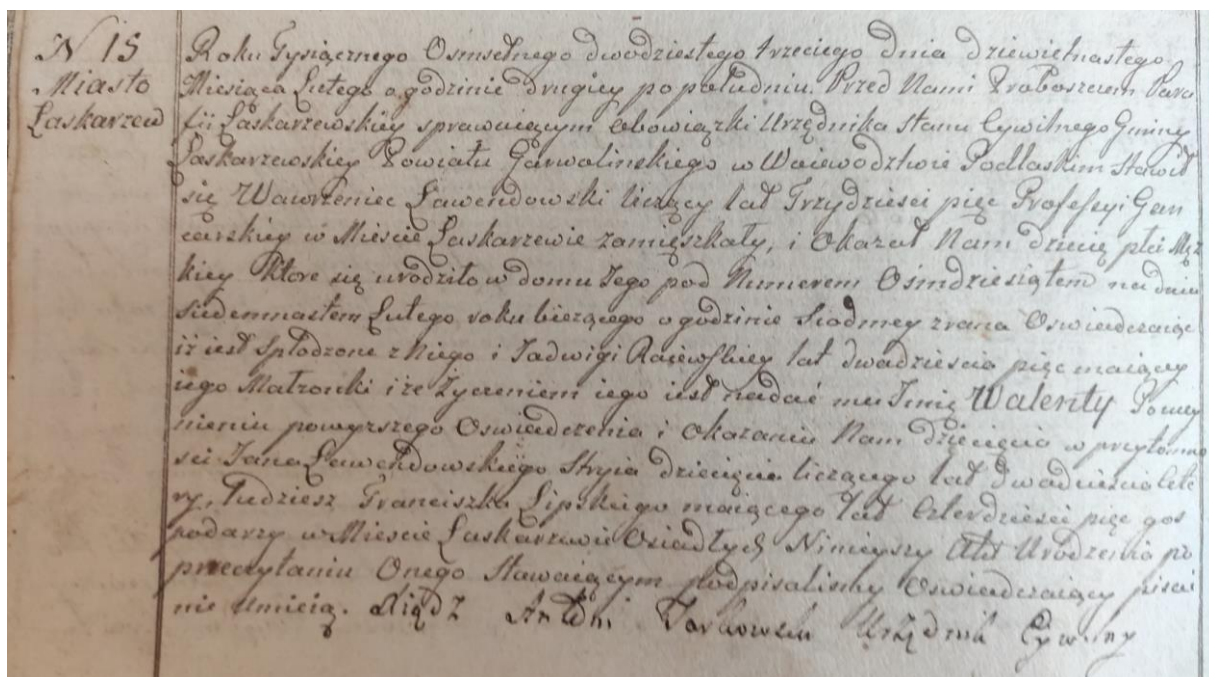 N 15
Miasto
Łaskarzew
Roku Tysiącznego Osmsetnego dwodziestego trzeciego dnia dziewietnastego
Miesiąca Lutego o godzinie drugiey po południu. Przed Nami Proboszczem Para
fii Łaskarzewskiey sprawuiącym Obowiązki Urzędnika stanu Cywilnego Gminy
Łaskarzewskiey Powiatu Garwalinskiego w Woiewodztwie Podlaskim Stawił
się Wawrzeniec Lawendowski liczący lat Trzydziesci pięc Profesyi Gan
carskiey w Miescie Łaskarzewie zamięszkały, i Okazał Nam dziecię płci Męz
kiey ktore się urodziło w domu Jego pod Numerem Osmdziesiątem na dniu
siedemnastem Lutego roku bieżącego o godzinie Siodmey zrana Oswiadczaiąc
iż iest Spłodzone z Niego i Jadwigi Raiewskiey lat dwadziescia pięc maiącey
iego Małzonki i że Życzeniem iego iest nadać mu Imię Walenty Po uczy
nieniu powyższego Oswiadczenia i Okazaniu Nam dziecięcia w przytomno
sci Jana Lawendowskiego Stryia dziecięcia liczącego lat Dwadziescia czte
ry, tudziesz Franciszka Lipskiego maiącego lat Czterdziesci pięc gos
podarzy w Miescie Łaskarzewie Osiadłych Ninieyszy Akt Urodzenia po
przeczytaniu Onego Stawaiącym podpisalismy Oswiadczaiący pisać
nie umieią. Xiądz Antoni Urzędnik Cywilny